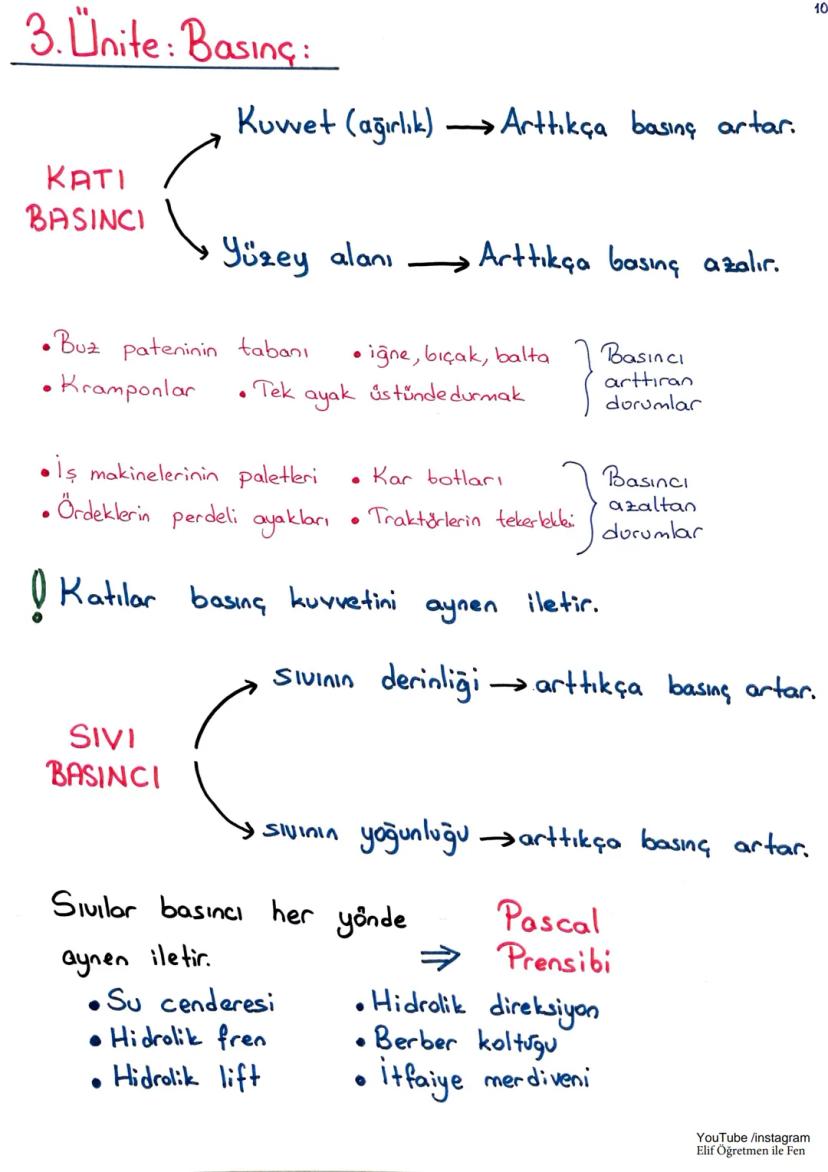 10
3. Ünite: Basınç:
Kuvvet (ağırlık) → Arttıkça basınç artar.
KATI
BASINCI
Yüzey alanı → Arttıkça basınç azalır.
• Buz pateninin tabanı • iğne, bıçak, balta
• Kramponlar • Tek ayak üstünde durmak
Basıncı
arttıran
durumlar
• İş makinelerinin paletleri • Kar botları
• Ördeklerin perdeli ayakları • Traktörlerin tekerlekleri
Basıncı
azaltan
durumlar
! Katılar basınç kuvvetini aynen iletir.
sıvının derinliği → arttıkça basınç artar.
SIVI
BASINCI
sıvının yoğunluğu → arttıkça basınç artar.
Sıvılar basıncı her yönde
aynen iletir.
⇒ Pascal
Prensibi
• Su cenderesi • Hidrolik direksiyon
• Hidrolik fren • Berber koltuğu
• Hidrolik lift • İtfaiye merdiveni
YouTube /instagram
Elif Öğretmen ile Fen